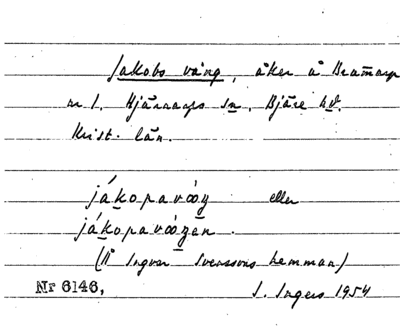 Jakobs vång, åker å Bramarp
nr 1. Hjärnarps sn, Bjäre hd.
Krist. län.
jákopavóŋ eller
jákopavóŋen.
(Å Ingvar Svenssons hemman)
Nr 6146, I. Ingers 1954